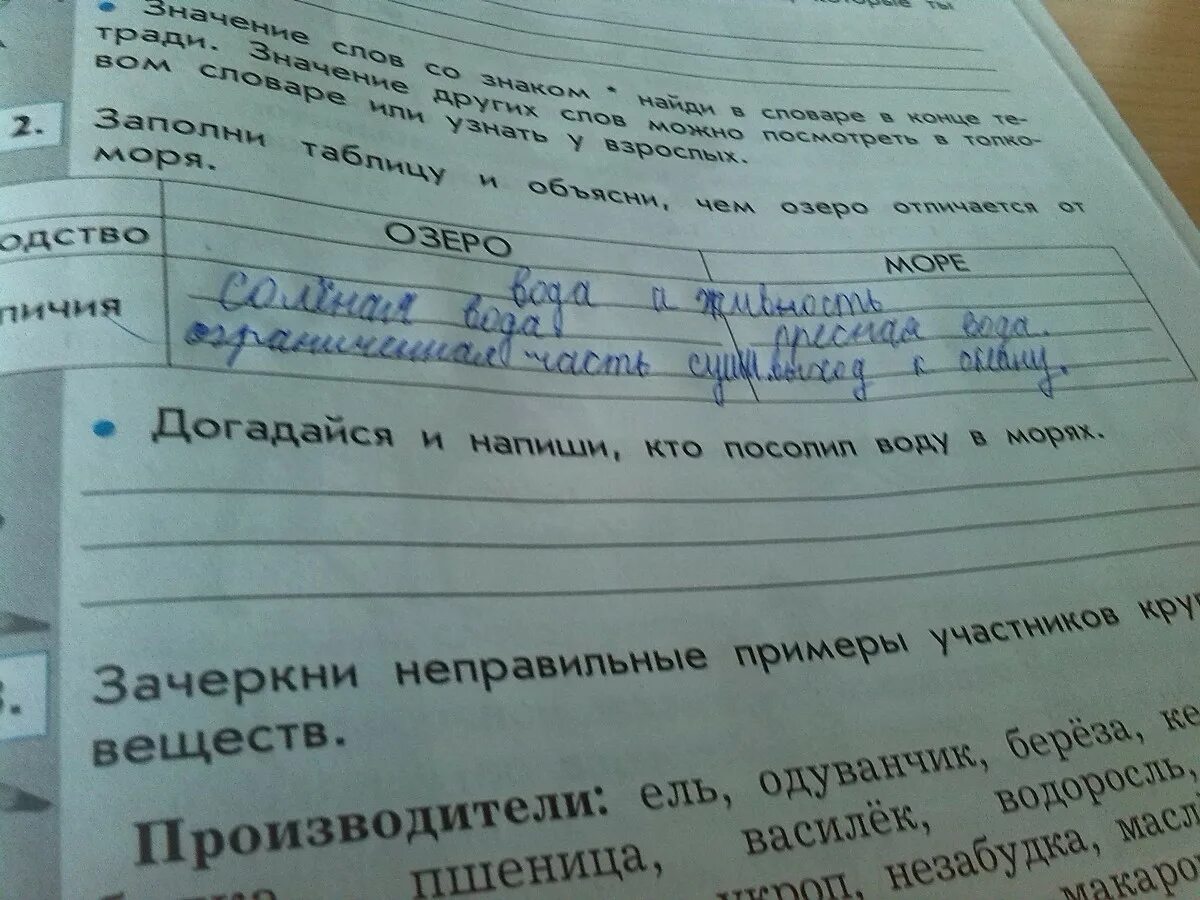 которые ты
Значение слов со знаком * найди в словаре в конце те-
тради. Значение других слов можно посмотреть в толко-
вом словаре или узнать у взрослых.
2. Заполни таблицу и объясни, чем озеро отличается от
моря.
ОЗЕРО МОРЕ
одство вода и живность
личия солёная вода пресная вода.
ограниченная часть суши выход к океану.
Догадайся и напиши, кто посолил воду в морях.
Зачеркни неправильные примеры участников кру
веществ.
Производители: ель, одуванчик, берёза, ке
пшеница, василёк, водоросль,
укроп, незабудка, масл
макаро